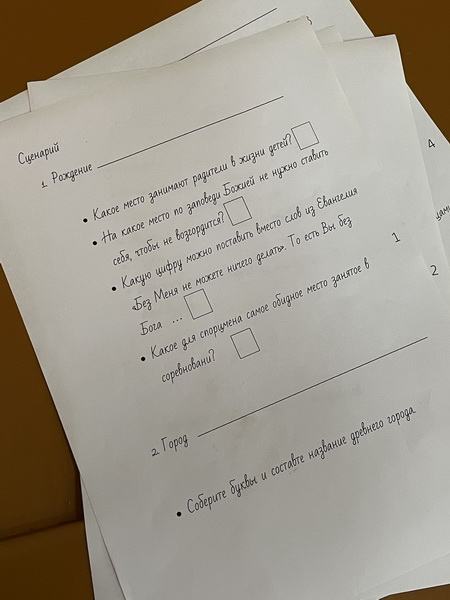 Сценарий
1. Рождение
• Какое место занимают радители в жизни детей?
• На какое место по заповеди Божией не нужно ставить
себя, чтобы не возгордится?
• Какую цифру можно поставить вместо слов из Евангелия
„Без Меня не можете ничего делать". То есть Вы без
Бога ...
• Какое для спорцмена самое обидное место занятое в
соревновани?
2. Город
• Соберите буквы и составте название древнего города
1
2
3
4